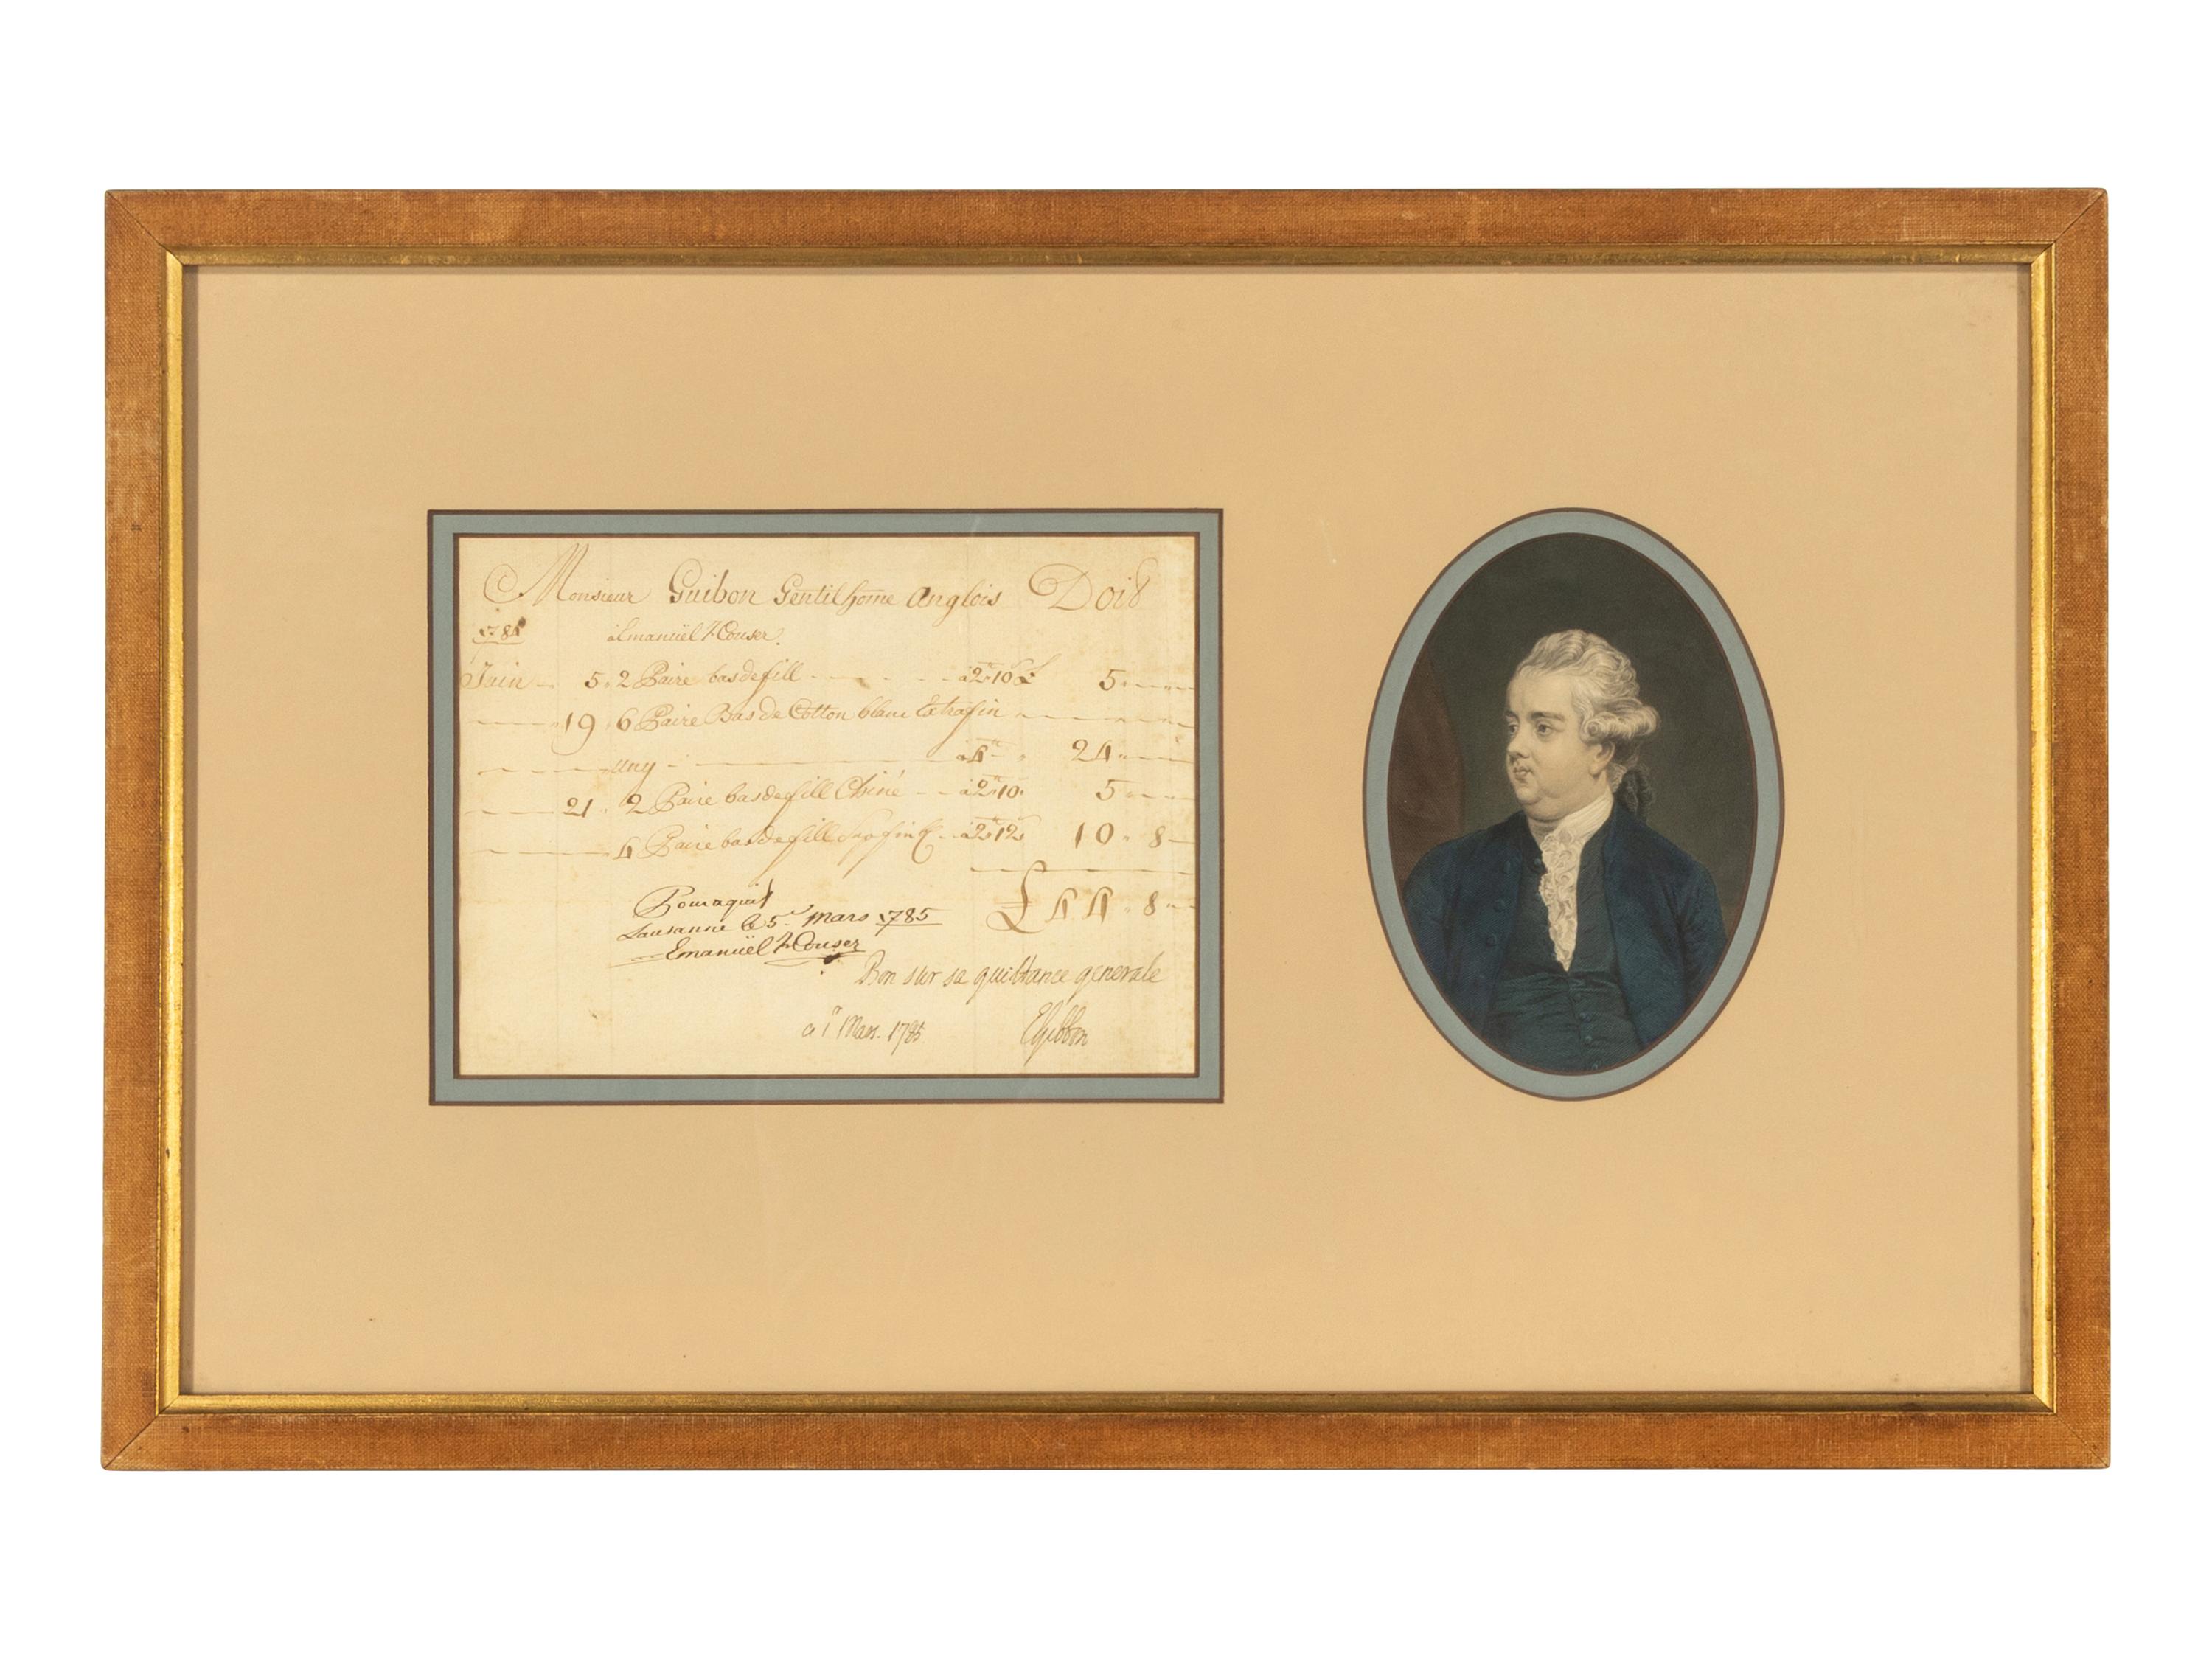 Monsieur Guibon Gentilhome Anglois Doit
1784 à Emanüel
Juin 5. 2 Paire bas de fill à 2"10 £ 5
19 6 Paire Bas de Cotton blanc Extrafin
uny à 4" 24
21. 2 Paire bas de fill Chiné à 2"10. 5
4 Paire bas de fill à 2"12 10. 8
£ 44. 8
Pour aquit
Lausanne le 5. Mars 1785
Emanüel
Bon sur sa quittance generale
Mars. 1785
EGibbon